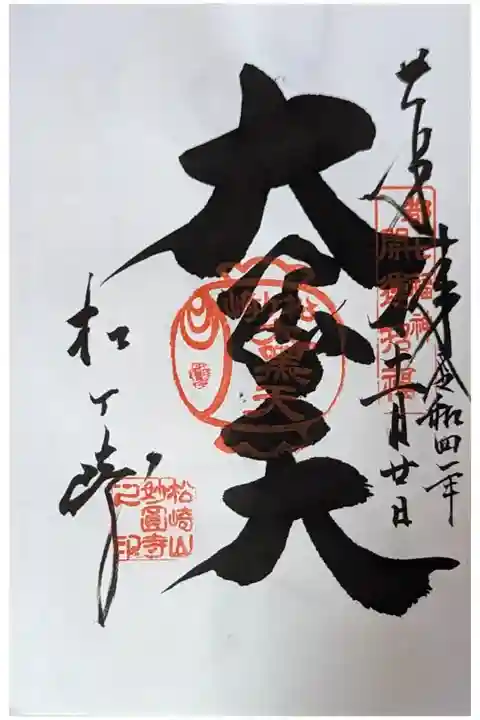 奉拝
令和四年
十二月廿日
都七福神
開運招福
大黒天
松ヶ崎
松ヶ崎
大黒天
松崎山
妙圓寺
之印